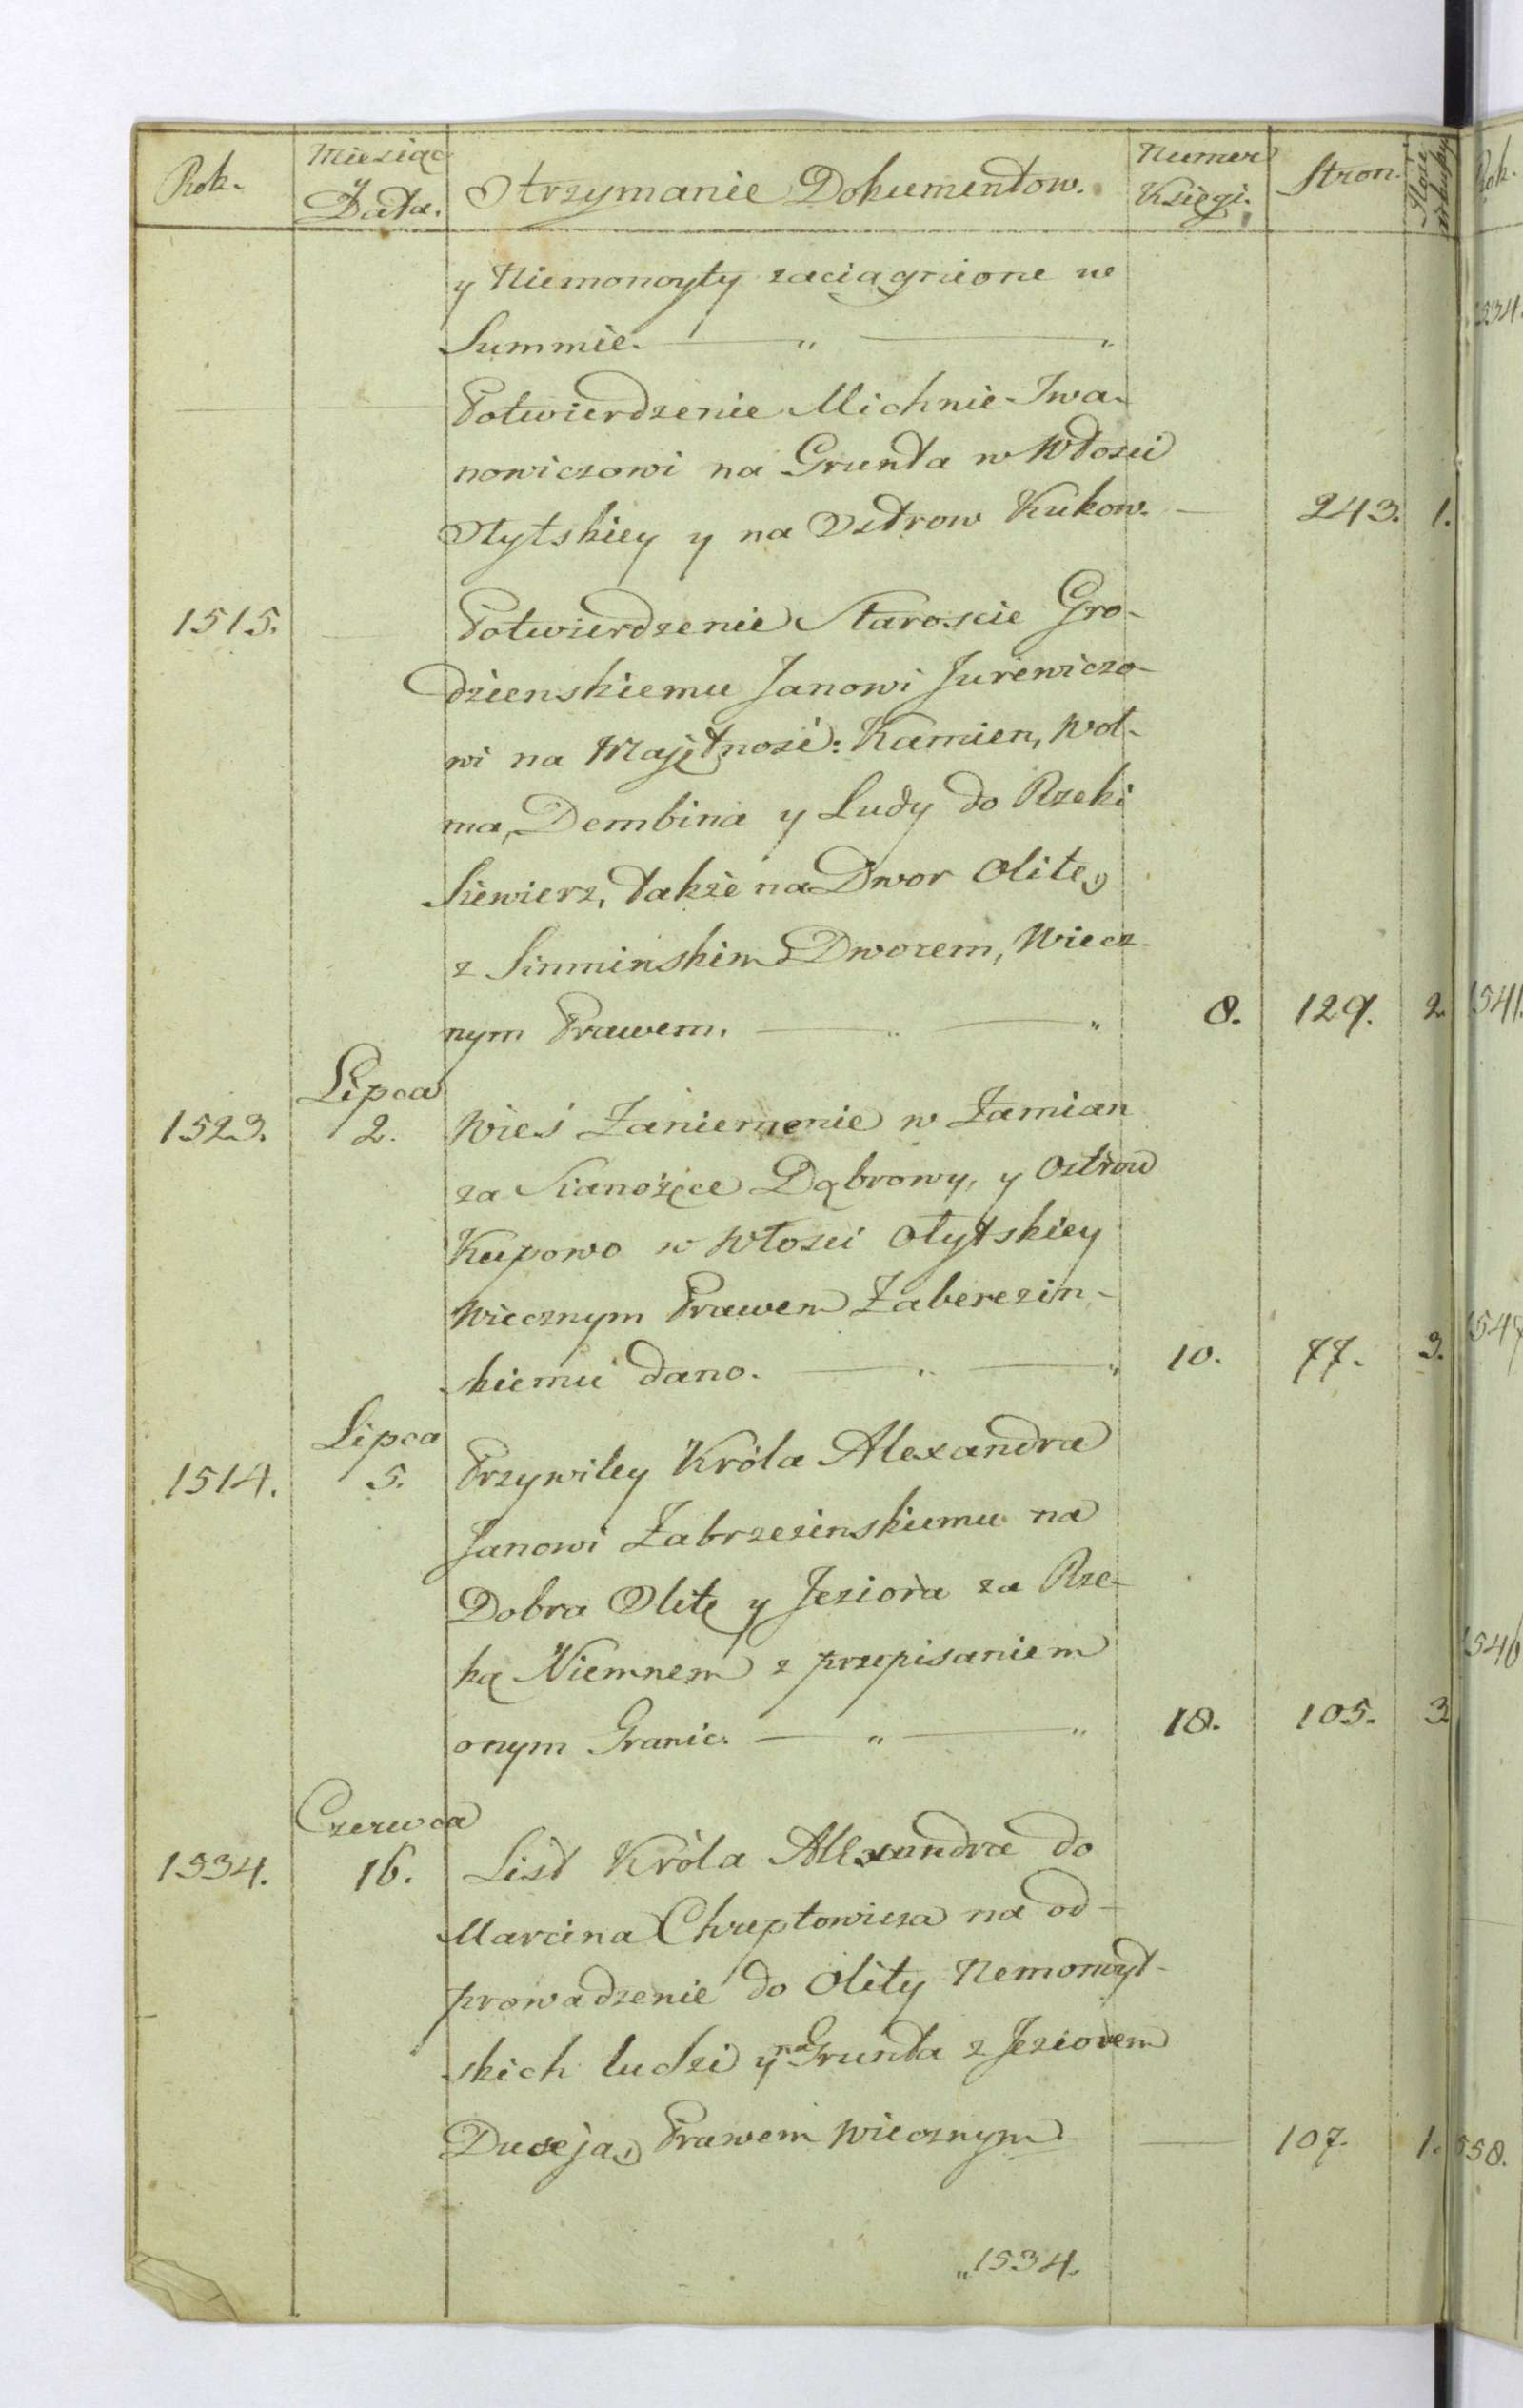 Rok. Miesiąc y Data. Otrzymanie Dokumentow. Numer Księgi. Stron. Ilość
y Niemonoyty zaciągnione w
Summie. — „ — „
— — Potwierdzenie Michnie Iwa-
nowiczowi na Grunta w Włosci
Olytskiey y na Ostrow Kukow. — 243. 1.
1515. — Potwierdzenie Staroscie Gro-
dzienskiemu Janowi Jurewiczo-
wi na Majętność: Kamien, Woł-
ma, Dembina y Ludy do Rzeki
Siewierz, także na Dwor Olitę,
z Simninskim Dworem, Wiecz-
nym Prawem. — „ — „ 8. 129. 2.
1523. Lipca 2. Wieś Zaniemenie w Zamian
za Sianożęce Dąbrowy, y Ostrow
Kupowo w Włosci Olytskiey
Wiecznym Prawem Zaberezin-
skiemu dano. — „ — „ 10. 77. 3.
1514. Lipca 5. Przywiley Króla Alexandra
Janowi Zabrzezinskiemu na
Dobra Olitę y Jeziora za Rze-
ką Niemnem z przepisaniem
onym Granic. — „ — „ 18. 105. 3
1534. Czerwca 16. List Króla Alexandra do
Marcina Chreptowicza na od-
prowadzenie do Olity Nemonoyt-
skich ludzi y na Grunta z Jeziorem
Duseja, Prawem Wiecznym — 107. 1.
„1534.